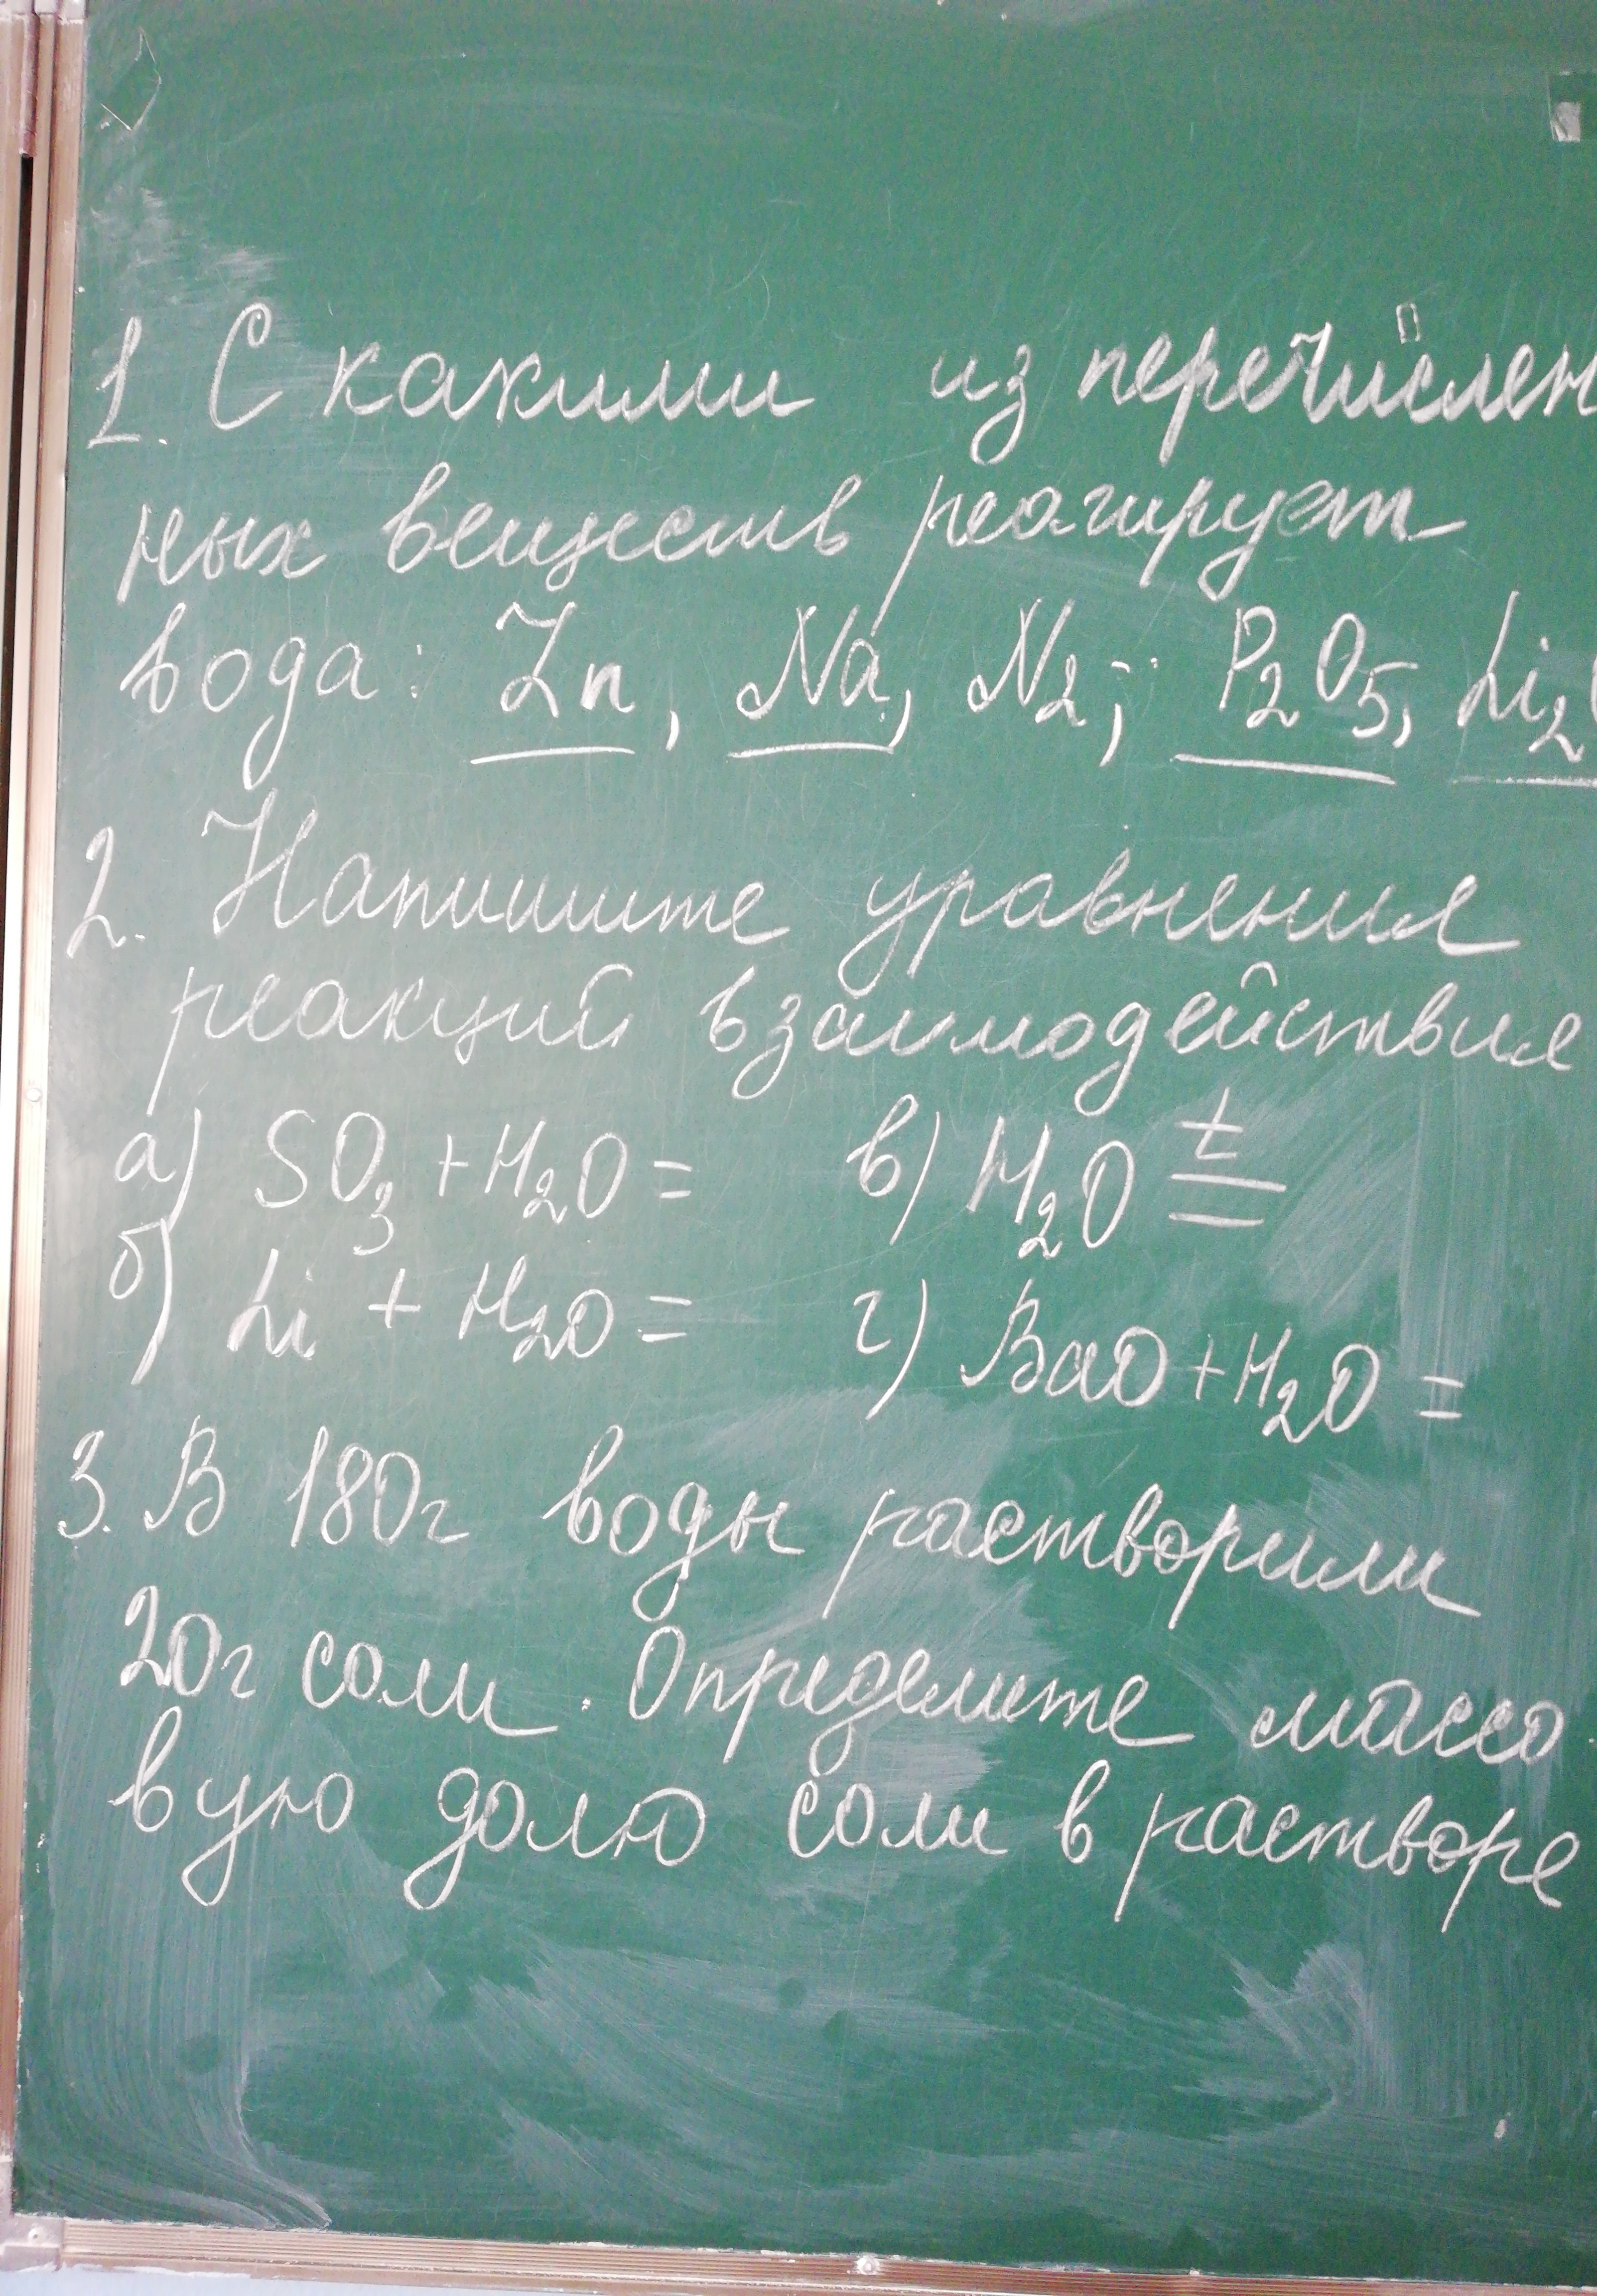 1. С какими из перечислен
ных веществ реагирует
вода: Zn, Na, N₂; P₂O₅, Li₂
2. Напишите уравнения
реакций взаимодействия
а) SO₃ + H₂O = в) H₂O t=
б) Li + H₂O = г) BaO + H₂O =
3. В 180г воды растворили
20г соли. Определите массо
вую долю соли в растворе